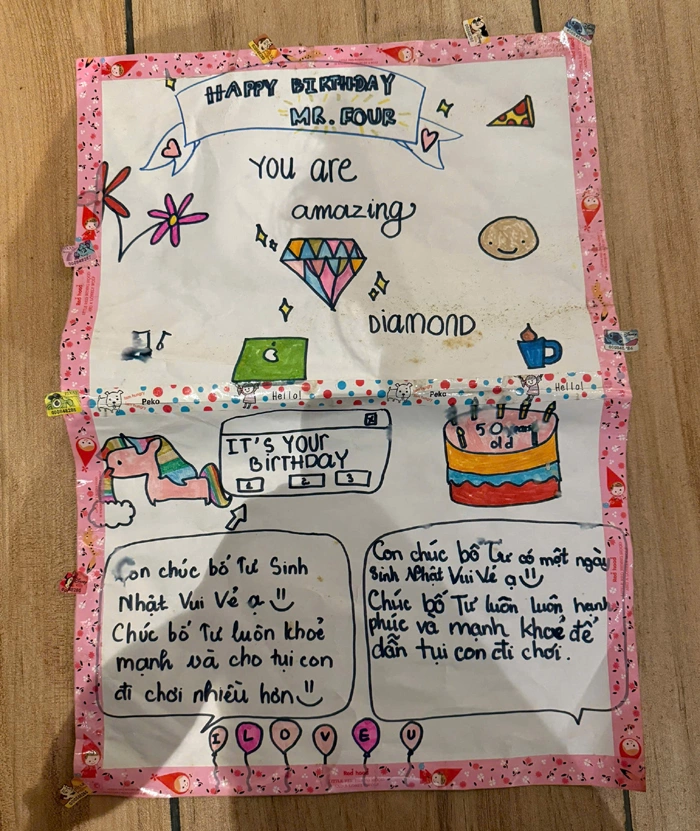 HAPPY BIRTHDAY
MR. FOUR
YOU are
amazing
DIAMOND
Peko
Hello!
Peko
Hello!
IT'S YOUR
BIRTHDAY
1 2 3
50 years
old
Con chúc bố Tư Sinh
Nhật Vui Vẻ ạ
Chúc bố Tư luôn khoẻ
mạnh và cho tụi con
đi chơi nhiều hơn
Con chúc bố Tư có một ngày
Sinh Nhật Vui Vẻ ạ
Chúc bố Tư luôn luôn hạnh
phúc và mạnh khoẻ để
dẫn tụi con đi chơi.
I LOVE U